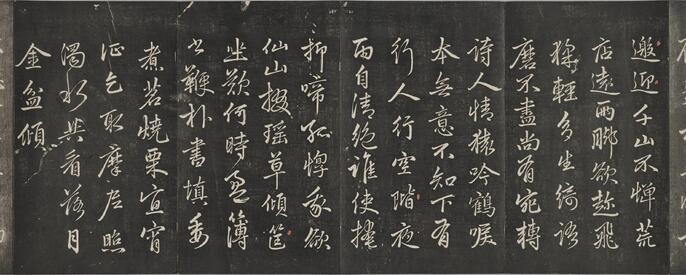 邀迎千山不憚荒
店遠兩腳欲趂飛
猱輕多生綺語
磨不盡尚有宛轉
詩人情猿吟鶴唳
本無意不知下有
行人行空階夜
雨自清絕誰使掩
抑啼孤惸我欲
仙山掇瑤草傾筐
坐歎何時盈簿
書鞭朴晝填委
煮茗燒栗宜宵
征乞取摩尼照
濁水共看落月
金盆傾